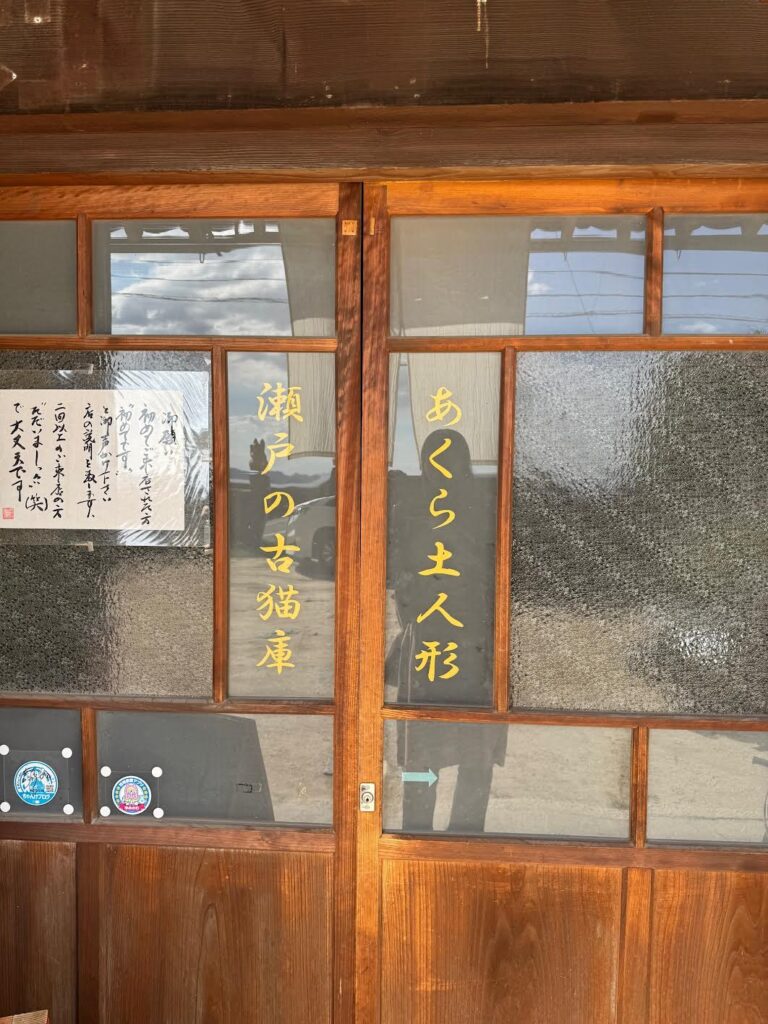 あくら土人形
瀬戸の古猫庫
御願い
初めてご来店された方
"初めてです"
と御声かけ下さい
店の説明を致します。
二回以上のご来店の方
"ただいまーっ"(笑)
で大丈夫です
ちゃんげブログ